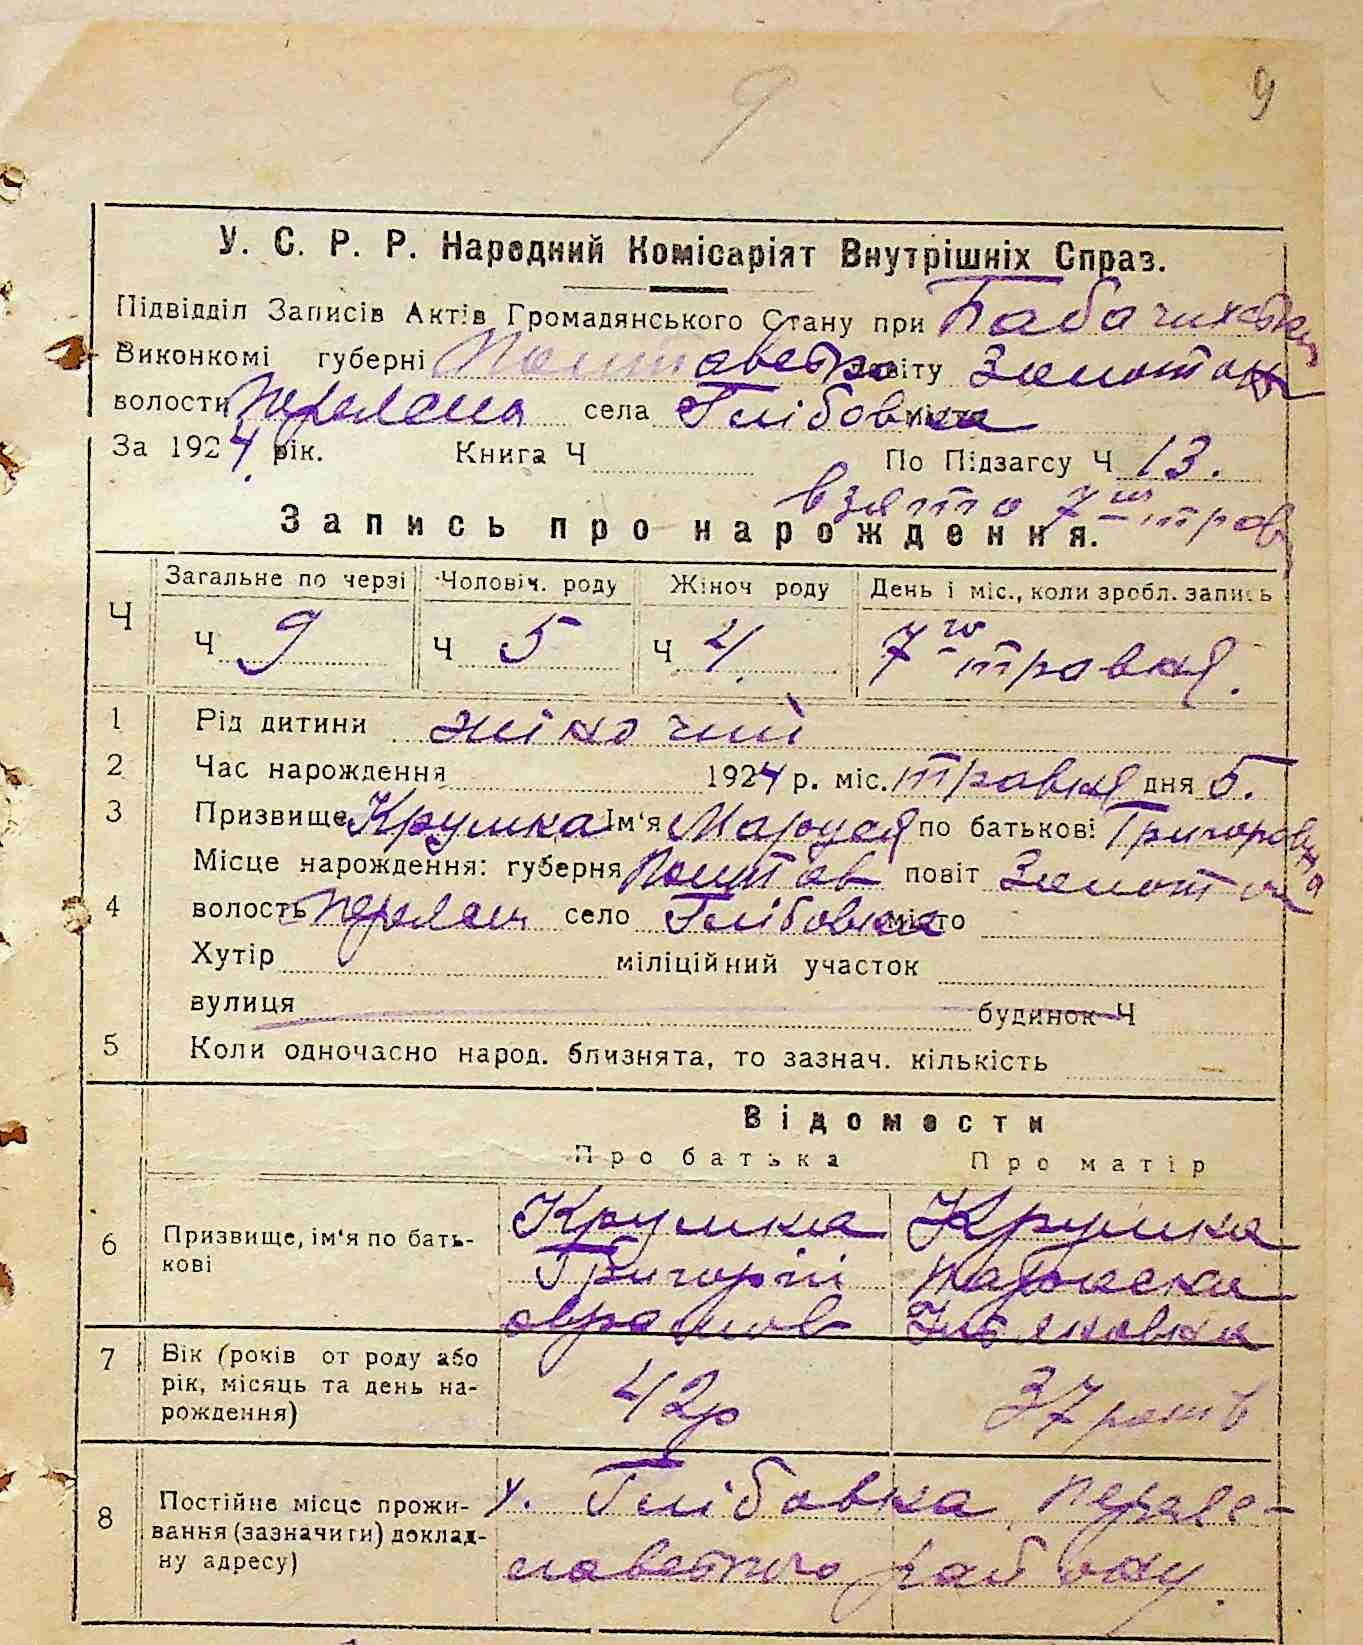 9 9
У. С. Р. Р. Народний Комісаріят Внутрішніх Справ.
Підвідділ Записів Актів Громадянського Стану при Бабачихській
Виконкомі губерні Полтавськ повіту Золотон
волости Переясл села Глібовка міста
За 1924 рік. Книга Ч По Підзагсу Ч 13.
взято 7го трав
Запись про народження.
Ч Загальне по черзі Чоловіч. роду Жіноч роду День і міс., коли зробл. запись
Ч 9 Ч 5 Ч 4 7го травня.
1 Рід дитини жіночий
2 Час народження 1924 р. міс. травня дня 5.
3 Призвище Крумка Ім'я Маруся по батькові Григоровна
Місце народження: губерня Полтав повіт Золотон
4 волость Переясл село Глібовка місто
Хутір міліційний участок
вулиця будинок Ч
5 Коли одночасно народ. близнята, то зазнач. кількість
Відомости
Про батька Про матір
6 Призвище, ім'я по батькові Крумка Крумка
Григорій Параска
Авра
7 Вік (років от роду або рік, місяць та день нарождення) 42р 37 років
8 Постійне місце проживання (зазначити) докладну адресу) х. Глібовка Перея-
славського району.